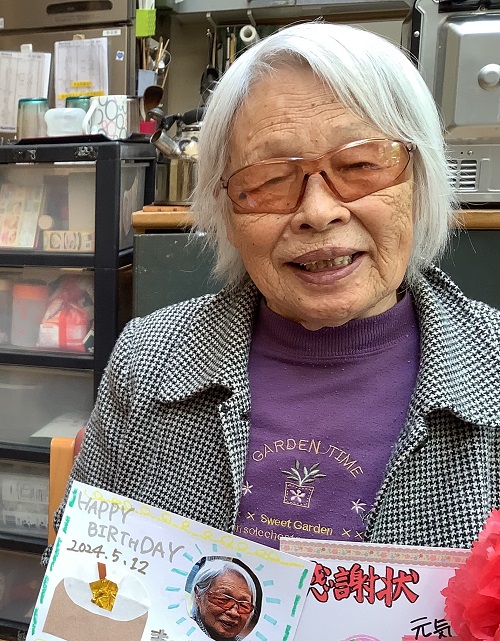 GARDEN TIME
Sweet Garden
HAPPY
BIRTHDAY
2024.5.12
感謝状
元気